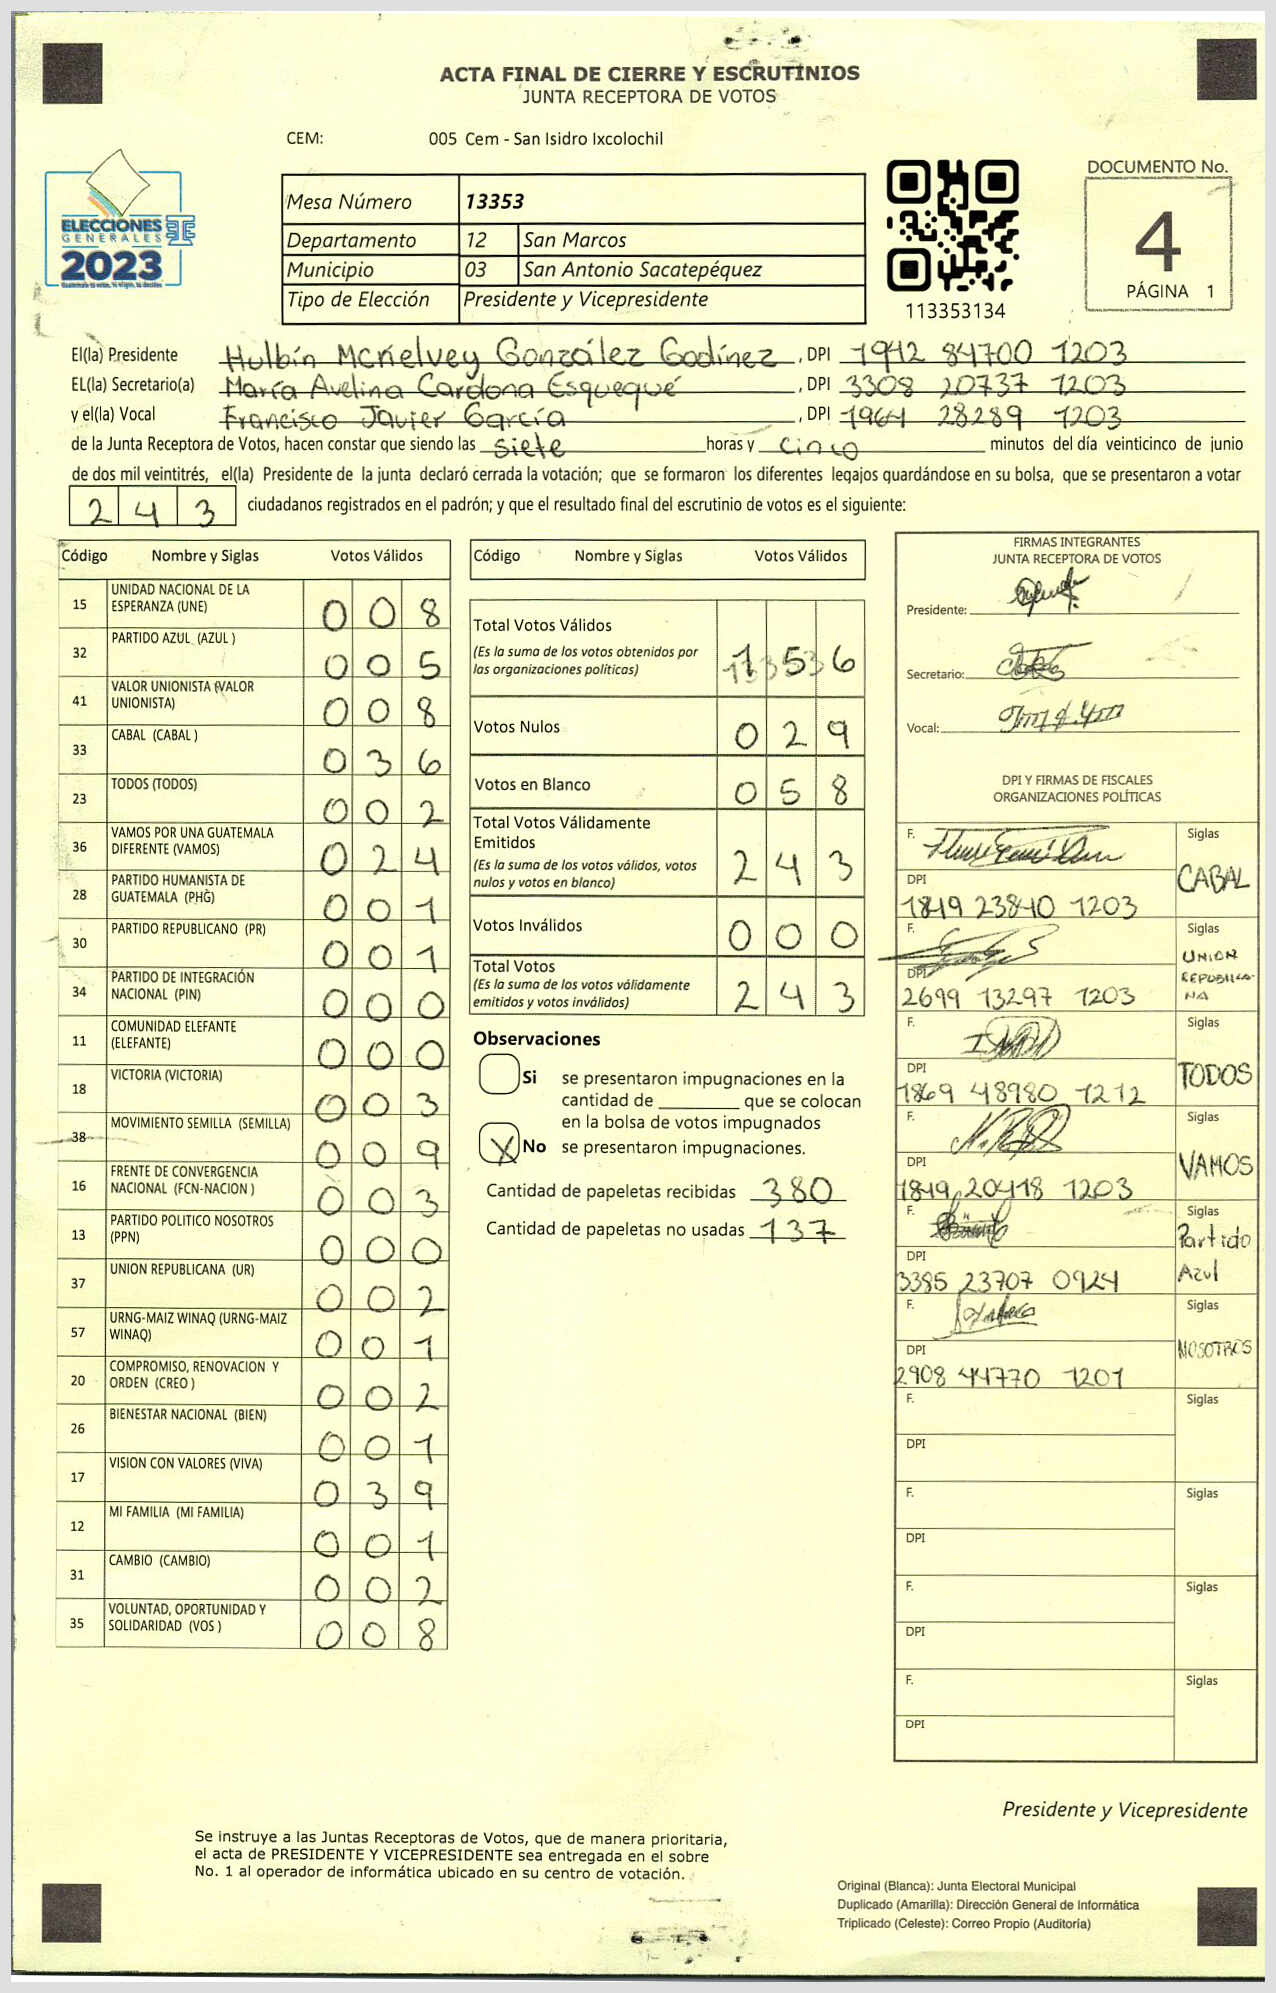 ACTA FINAL DE CIERRE Y ESCRUTINIOS
JUNTA RECEPTORA DE VOTOS
CEM: 005 Cem - San Isidro Ixcolochil
ELECCIONES
GENERALES
2023
Mesa Número 13353
Departamento 12 San Marcos
Municipio 03 San Antonio Sacatepéquez
Tipo de Elección Presidente y Vicepresidente
113353134
DOCUMENTO No.
4
PÁGINA 1
El(la) Presidente Hulbín Mcnelvey González Godínez, DPI 1942 84700 1203
EL(la) Secretario(a) María Avelina Cardona Esquequé, DPI 3308 20737 1203
y el(la) Vocal Francisco Javier García, DPI 1964 28289 1203
de la Junta Receptora de Votos, hacen constar que siendo las siete horas y cinco minutos del día veinticinco de junio
de dos mil veintitrés, el(la) Presidente de la junta declaró cerrada la votación; que se formaron los diferentes legajos guardándose en su bolsa, que se presentaron a votar
243 ciudadanos registrados en el padrón; y que el resultado final del escrutinio de votos es el siguiente:
Código Nombre y Siglas Votos Válidos
15 UNIDAD NACIONAL DE LA ESPERANZA (UNE) 008
32 PARTIDO AZUL (AZUL ) 005
41 VALOR UNIONISTA (VALOR UNIONISTA) 008
33 CABAL (CABAL ) 036
23 TODOS (TODOS) 002
36 VAMOS POR UNA GUATEMALA DIFERENTE (VAMOS) 024
28 PARTIDO HUMANISTA DE GUATEMALA (PHG) 001
30 PARTIDO REPUBLICANO (PR) 001
34 PARTIDO DE INTEGRACIÓN NACIONAL (PIN) 000
11 COMUNIDAD ELEFANTE (ELEFANTE) 000
18 VICTORIA (VICTORIA) 003
38 MOVIMIENTO SEMILLA (SEMILLA) 009
16 FRENTE DE CONVERGENCIA NACIONAL (FCN-NACION ) 003
13 PARTIDO POLITICO NOSOTROS (PPN) 000
37 UNION REPUBLICANA (UR) 002
57 URNG-MAIZ WINAQ (URNG-MAIZ WINAQ) 001
20 COMPROMISO, RENOVACION Y ORDEN (CREO ) 002
26 BIENESTAR NACIONAL (BIEN) 001
17 VISION CON VALORES (VIVA) 039
12 MI FAMILIA (MI FAMILIA) 001
31 CAMBIO (CAMBIO) 002
35 VOLUNTAD, OPORTUNIDAD Y SOLIDARIDAD (VOS ) 008
Código Nombre y Siglas Votos Válidos
Total Votos Válidos 156
(Es la suma de los votos obtenidos por
las organizaciones políticas)
Votos Nulos 029
Votos en Blanco 058
Total Votos Válidamente
Emitidos 243
(Es la suma de los votos válidos, votos
nulos y votos en blanco)
Votos Inválidos 000
Total Votos 243
(Es la suma de los votos válidamente
emitidos y votos inválidos)
Observaciones
Si se presentaron impugnaciones en la
cantidad de ________ que se colocan
en la bolsa de votos impugnados
X No se presentaron impugnaciones.
Cantidad de papeletas recibidas 380
Cantidad de papeletas no usadas 137
FIRMAS INTEGRANTES
JUNTA RECEPTORA DE VOTOS
Presidente:
Secretario:
Vocal:
DPI Y FIRMAS DE FISCALES
ORGANIZACIONES POLÍTICAS
F. Siglas
CABAL
DPI
1849 23840 1203
F. Siglas
UNION REPUBLICANA
DPI
2699 13297 1203
F. Siglas
TODOS
DPI
1869 48980 1212
F. Siglas
VAMOS
DPI
1849 20418 1203
F. Siglas
Partido Azul
DPI
3385 23707 0924
F. Siglas
NOSOTROS
DPI
2908 44770 1201
F. Siglas
DPI
F. Siglas
DPI
F. Siglas
DPI
F. Siglas
DPI
Presidente y Vicepresidente
Se instruye a las Juntas Receptoras de Votos, que de manera prioritaria,
el acta de PRESIDENTE Y VICEPRESIDENTE sea entregada en el sobre
No. 1 al operador de informática ubicado en su centro de votación.
Original (Blanca): Junta Electoral Municipal
Duplicado (Amarilla): Dirección General de Informática
Triplicado (Celeste): Correo Propio (Auditoría)